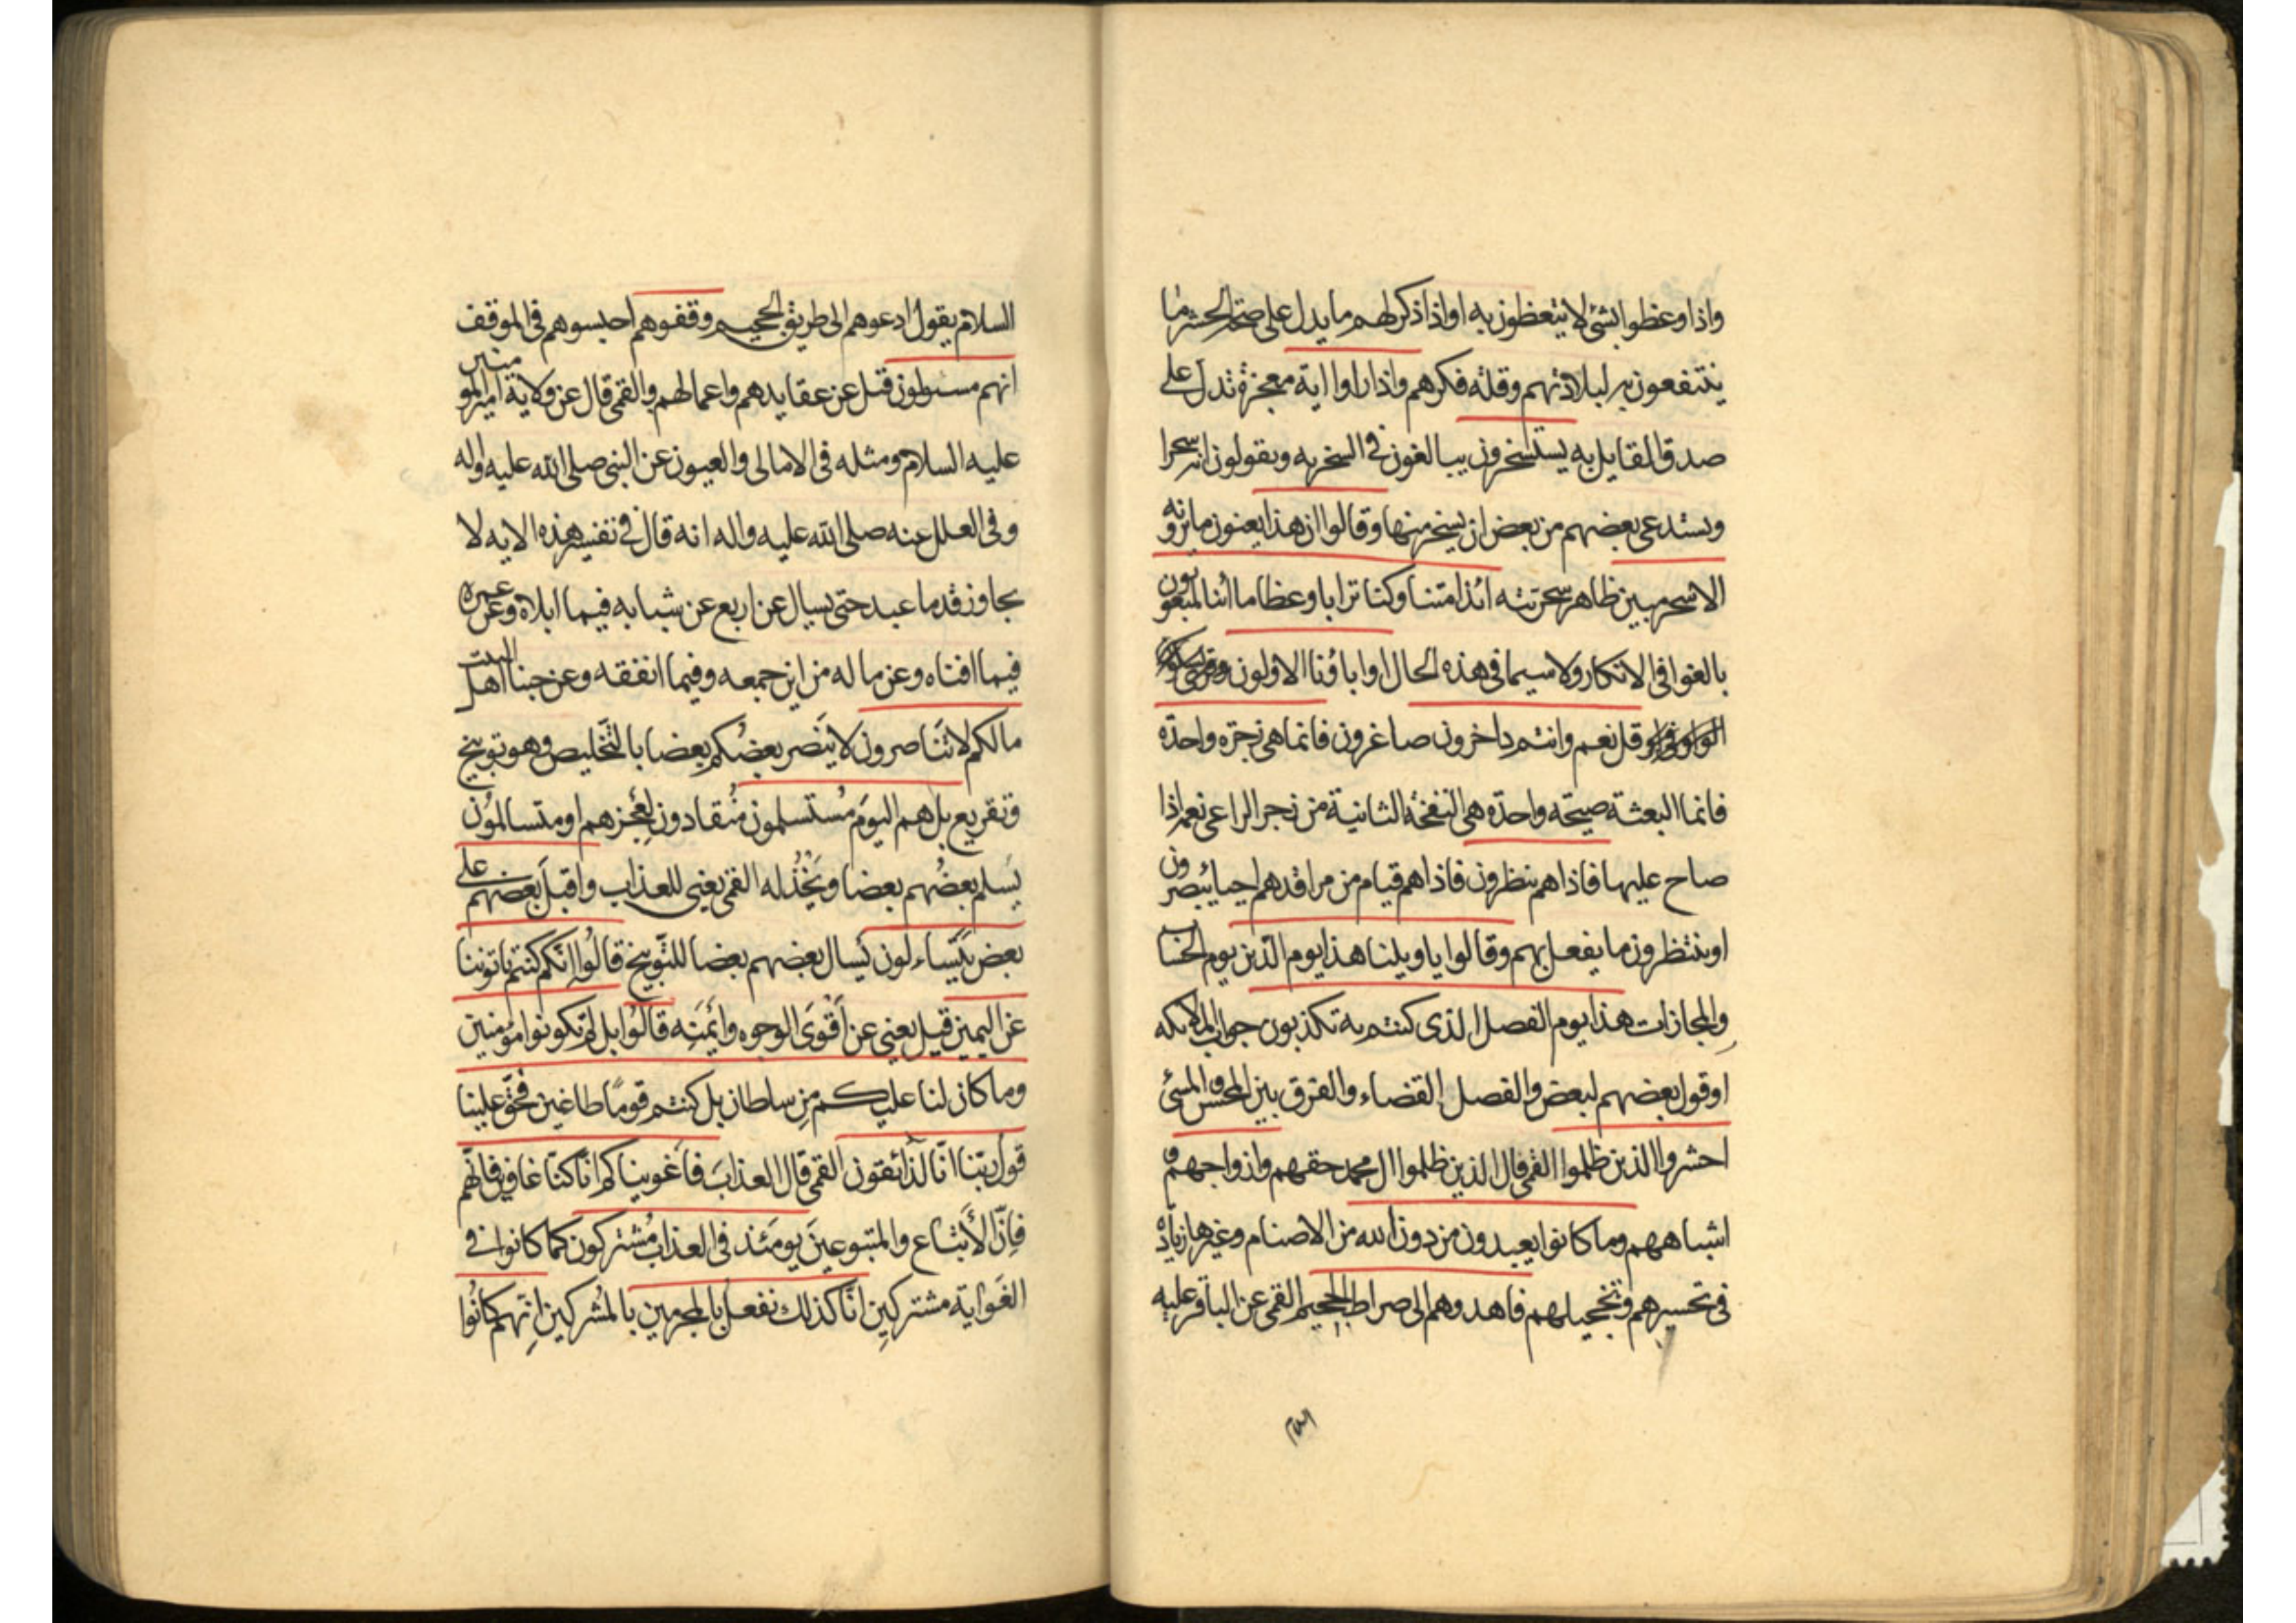 واذا وعظوا بشئ لا يتعظون به او اذا ذكر لهم ما يدل على صحة الحشر ما
ينتفعون به لبلادتهم وقلة فكرهم واذا راوا اية معجزة تدل على
صدق القايل به يستسخرون يبالغون في السخريه ويقولون انه سحر ا
ويستدعى بعضهم من بعض ان يسخر منها وقالوا ان هذا يعنون ما يرونه
الا سحر مبين ظاهر سحريته ائذا متنا وكنا ترابا وعظاما ائنا لمبعوثون
بالغوا فى الانكار ولا سيما فى هذه الحال اوا باؤنا الاولون وقرئ بسكون
الواو قل نعم وانتم داخرون صاغرون فانما هى زجرة واحدة
فانما البعثة صيحه واحدة هى النفخة الثانية من زجر الراعى نعمه اذا
صاح عليها فاذا هم ينظرون فاذا هم قيام من مراقدهم احيا يبصرون
او ينتظرون ما يفعل بهم وقالوا يا ويلنا هذا يوم الدين يوم الحساب
والمجازات هذا يوم الفصل الذى كنتم به تكذبون جواب الملائكه
او قول بعضهم لبعض والفصل القضاء والفرق بين المحسن والمسئ
احشروا الذين ظلموا القمى قال الذين ظلموا ال محمد حقهم وازواجهم و
اشباههم وما كانوا يعبدون من دون الله من الاصنام وغيرها زيادة
فى تحسيرهم وتخجيلهم فاهدوهم الى صراط الجحيم القمى عن الباقر عليه
السلام يقول ادعوهم الى طريق الجحيم وقفوهم احبسوهم فى الموقف
انهم مسئولون قيل عن عقايدهم واعمالهم والقمى قال عن ولاية امير المومنين
عليه السلام ومثله فى الامالى والعيون عن النبى صلى الله عليه واله
وفى العلل عنه صلى الله عليه واله انه قال فى تفسير هذه الايه لا
يجاوز قدما عبد حتى يسال عن اربع عن شبابه فيما ابلاه وعن عمره
فيما افناه وعن ماله من اين جمعه وفيما انفقه وعن حبنا اهل البيت
مالكم لا تناصرون لا ينصر بعضكم بعضا بالتخليص وهو توبيخ
وتقريع بل هم اليوم مستسلمون منقادون لعجزهم او متسالمون
يسلم بعضهم بعضا ويخذله القمى يعنى للعذاب واقبل بعضهم على
بعض يتساءلون يسال بعضهم بعضا للتوبيخ قالوا انكم كنتم تاتوننا
عن اليمين قيل يعنى عن اقوى الوجوه وايمنه قالوا بل لم تكونوا مؤمنين
وما كان لنا عليكم من سلطان بل كنتم قوما طاغين فحق علينا
قول ربنا انا لذائقون القمى قال العذاب فاغويناكم انا كنا غاوين فانهم
فان الاتباع والمتبوعين يومئذ فى العذاب مشتركون كما كانوا فى
الغواية مشتركين انا كذلك نفعل بالمجرمين بالمشركين انهم كانوا